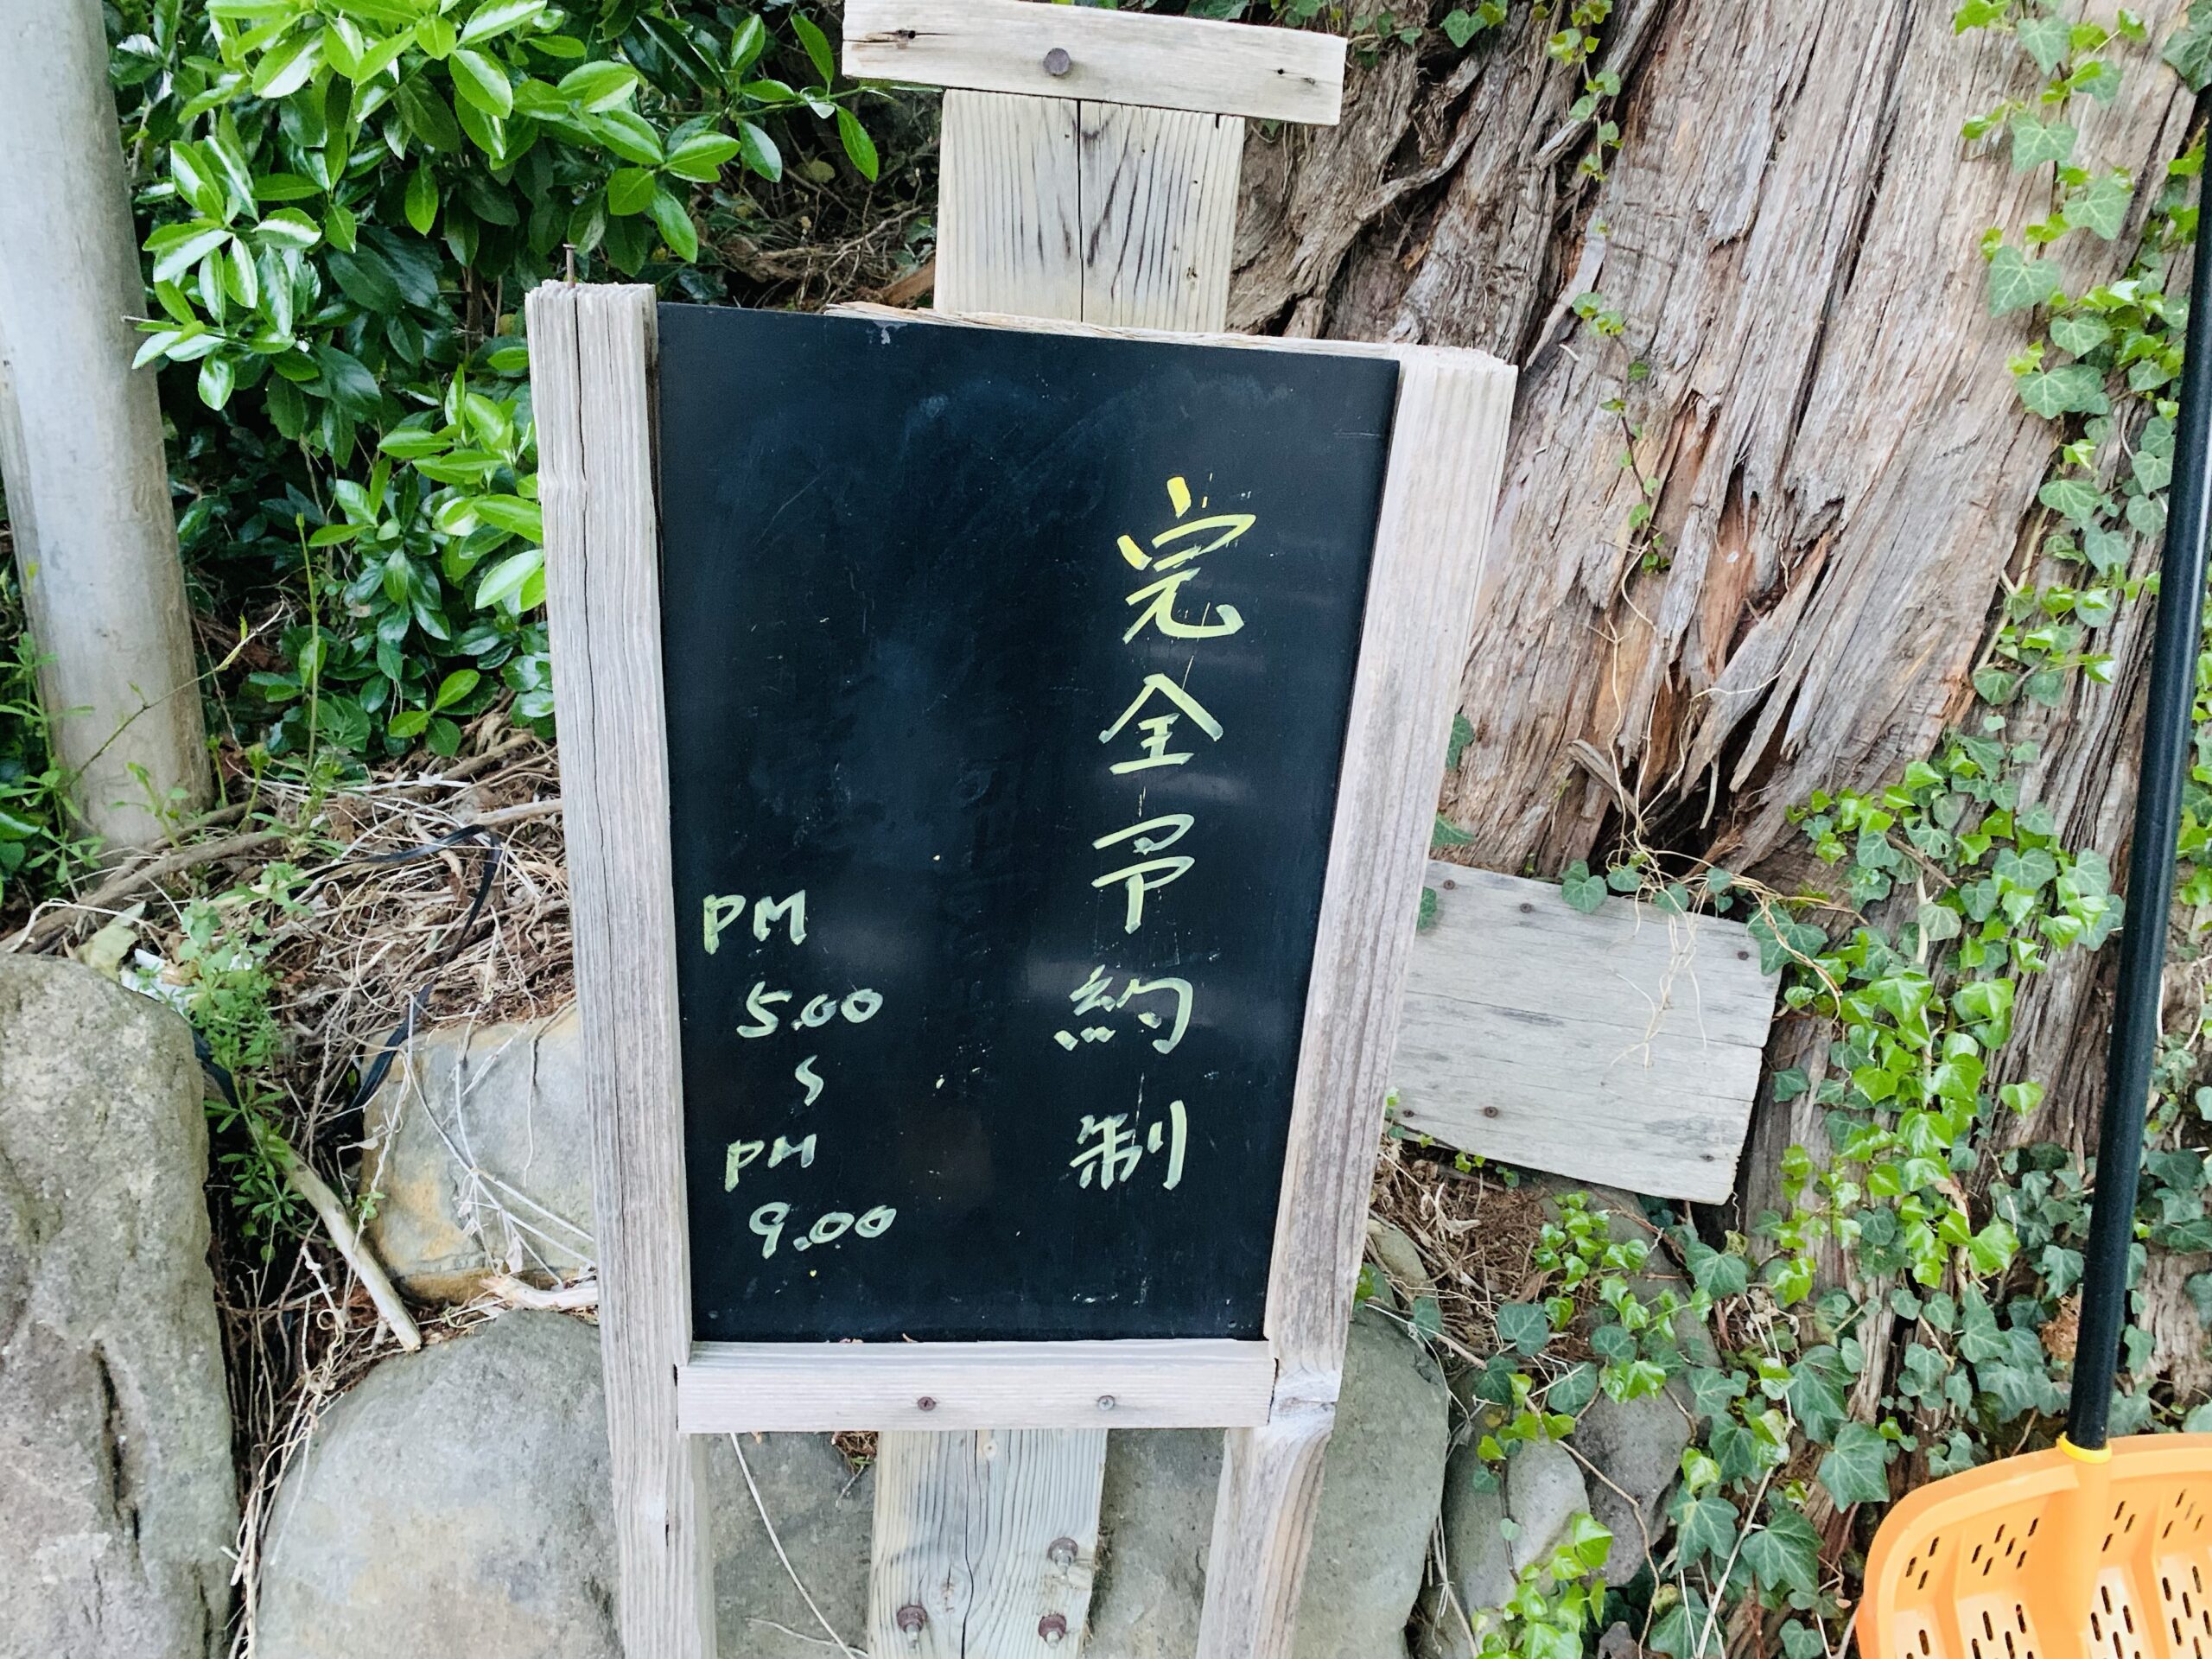 完全予約制
PM
5.00
〜
PM
9.00